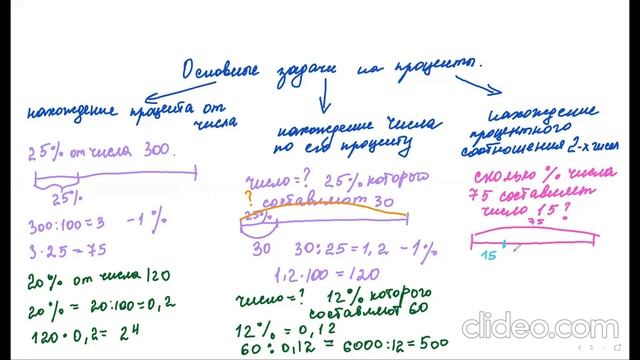 Основные задачи на проценты.
нахождение процента от
числа
25% от числа 300.
25%
300:100=3 -1%
3·25=75
20% от числа 120
20% = 20:100=0,2
120·0,2= 24
нахождение числа
по его проценту
число=? 25% которого
? составляют 30
25%
30 30:25=1,2 -1%
1,2·100=120
число=? 12% которого
составляют 60
12% = 0,12
60:0,12= 6000:12=500
нахождение
процентного
соотношения 2-х чисел
сколько % числа
75 составляет
число 15?
75
15
clideo.com